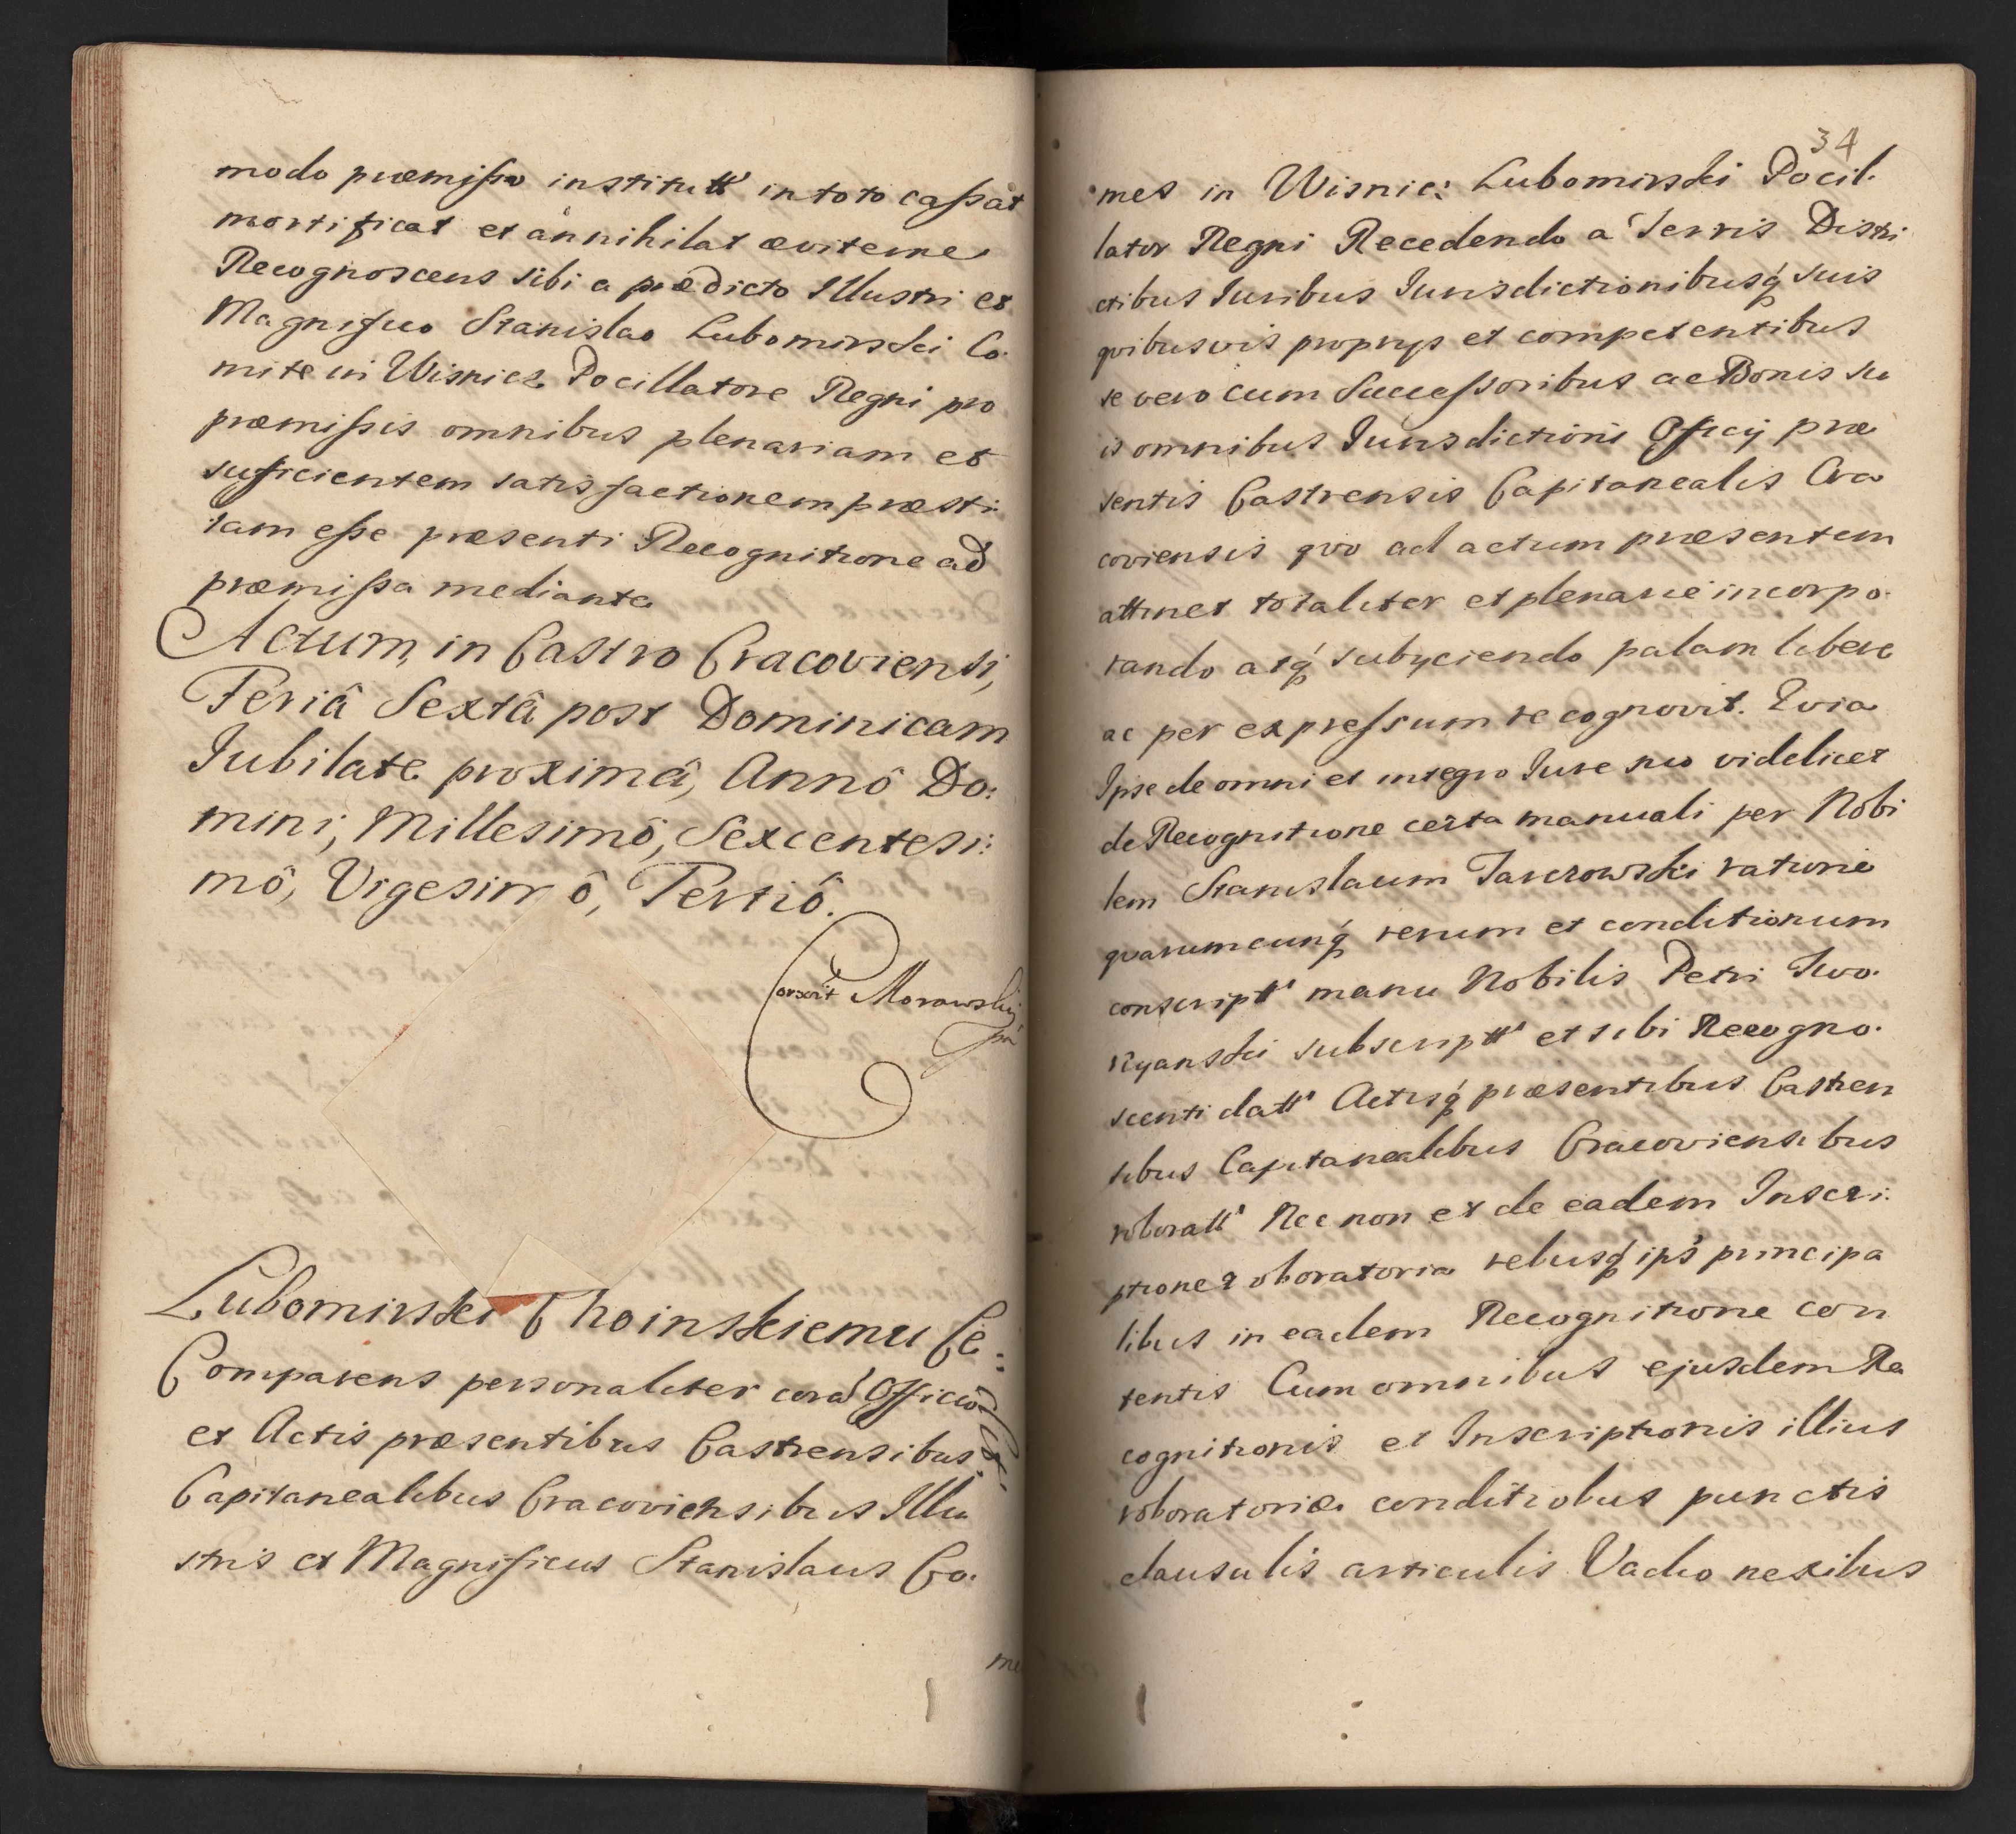 modo præmisso institutt' in toto cassat
mortificat et annihilat æviterne
Recognoscens sibi a prædicto Illustri et
Magnifico Stanislao Lubomirski Co.
mite in Wisnicz Pocillatore Regni pro
præmissis omnibus plenariam et
sufficientem satisfactionem præsti.
tam esse præsenti Recognitione ad
præmissa mediante
Actum, in Castro Cracoviensi,
Feriâ Sextâ post Dominicam
Jubilate proximâ, Annô Do:
mini, Millesimô, Sexcentesi:
mô, Vigesimô, Tertiô.
Corexit Morawski
Lubomirski Choinskiemu Ce:
Comparens personaliter corã Officio
et Actis præsentibus Castrensibus
Capitanealibus Cracoviensibus Illu
stris et Magnificus Stanislaus Co.
me
34
mes in Wisnic: Lubomirski Pocil.
lator Regni Recedendo a Terris Distri
ctibus Iuribus Iurisdictionibusq́ suis
quibusvis proprys et competentibus
se vero cum Successoribus ac Bonis su
is omnibus Iurisdictioni Officij præ
sentis Castrensis Capitanealis Cra
coviensis quo ad actum præsentem
attinet totaliter et plenarie incorpo.
rando atq́ subyciendo palam libere
ac per expressum recognovit. Quia
Ipse de omni et integro Iure suo videlicet
de Recognitione certa manuali per Nobi
lem Stanislaum Jaxczowski ratione
quarumcunq́ rerum et conditionum
conscriptt' manu Nobilis Petri Two.
ryanski subscriptt' et sibi Recogno.
scenti datt' Actisq́ præsentibus Castren
sibus Capitanealibus Cracoviensibus
roboratt' Nec non et de eadem Inscri.
ptione roboratoria rebusq́ ips' principa
libus in eadem Recognitione con
tentis Cum omnibus ejusdem Re
cognitionis et Inscriptionis illius
roboratoriæ conditiobus punctis
clausulis articulis Vadio nexibus